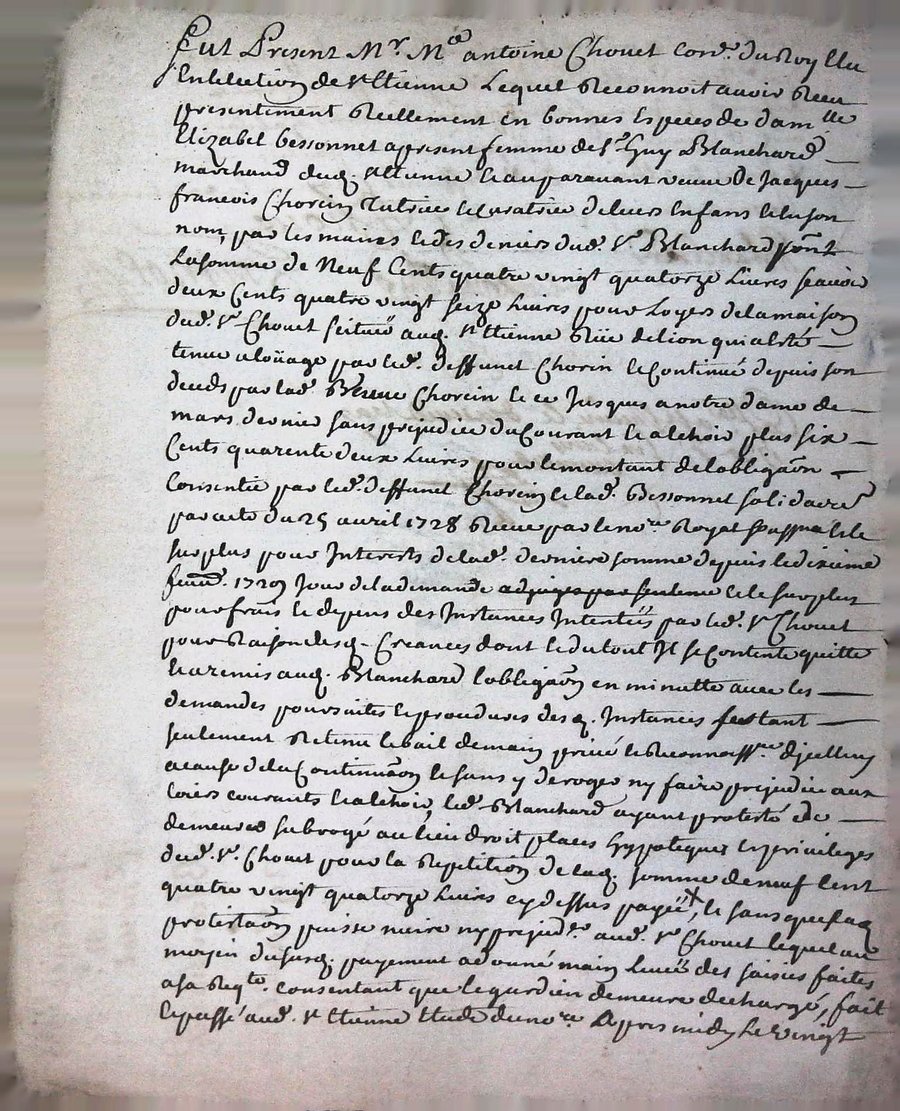 fut Present Mr. Me antoine Chovet Conr. du Roy Elu
En lelection de st Etienne Lequel Reconnoit avoir Receu
presentiment Reellement en bonnes Especes de damlle
Elizabet bessonnet apresent femme de sr. Guy Blanchard
marchand dud. st Etienne & auparavant veuve De Jacques
francois Chorein Tutrice & Curatrice de leurs Enfans & en son
nom, par les mains & des deniers dud. sr. Blanchard
La somme de Neuf Cents quatre vingt quatorze Livres scavoir
deux Cents quatre vingt seize Livres pour Loyers de la maison
dud. sr. Chovet scituée aud. st Etienne Rüe de lion qui a êté
tenue a loüage par led. deffunct Chorein & Continué depuis son
deceds par lad. veuve Chorein & ce Jusques a notre dame de
mars dernier sans prejudice du Courant & a echoir, plus six
Cents quarente deux Livres pour le montant de lobligaôn
Consentie par led. deffunct Chorein & lad. Bessonnet solidaire
par acte du 25 avril 1728 Receue par le nore Royal & le
surplus pour Interests de lad. derniere somme depuis le dixieme
1729 Jour de la demande adjugés par sentence & le surplus
pour frais & depens des Instances Intentées par led. sr Chovet
pour Raison desd. Creances dont & du tout Il se Contente quitte
& a remis aud. Blanchard lobligaôn en minutte avec les
demandes poursuites & procedures desd. Instances
seulement Retenu le bail de main privé & Reconnoissce dicelluy
a cause de la Continuaôn & sans y deroger ny faire prejudice aux
loiers courants & a echoir, led. Blanchard ayant protesté de
demeurer subrogé au lieu droit places hypoteques & privileges
dud. sr. Chovet pour la Repetition de lad. somme de neuf Cent
quatre vingt quatorze Livres cy dessus payée, & sans que lad.
protestaôn puisse nuire ny prejudr. aud. sr Chovet lequel au
moyen du susd. payement a donné main levée des saisies faites
a sa Reqte. consentant que le gardien demeure dechargé, fait
& passé aud. st Etienne Etude du nore apres midy Le vingt